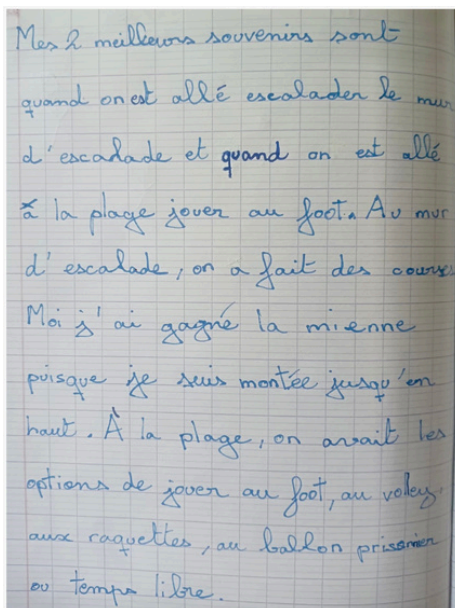 Mes 2 meilleurs souvenirs sont
quand on est allé escalader le mur
d'escalade et quand on est allé
à la plage jouer au foot. Au mur
d'escalade, on a fait des courses
Moi j'ai gagné la mienne
puisque je suis montée jusqu'en
haut. À la plage, on avait les
options de jouer au foot, au volley,
aux raquettes, au ballon prisonnier
ou temps libre.